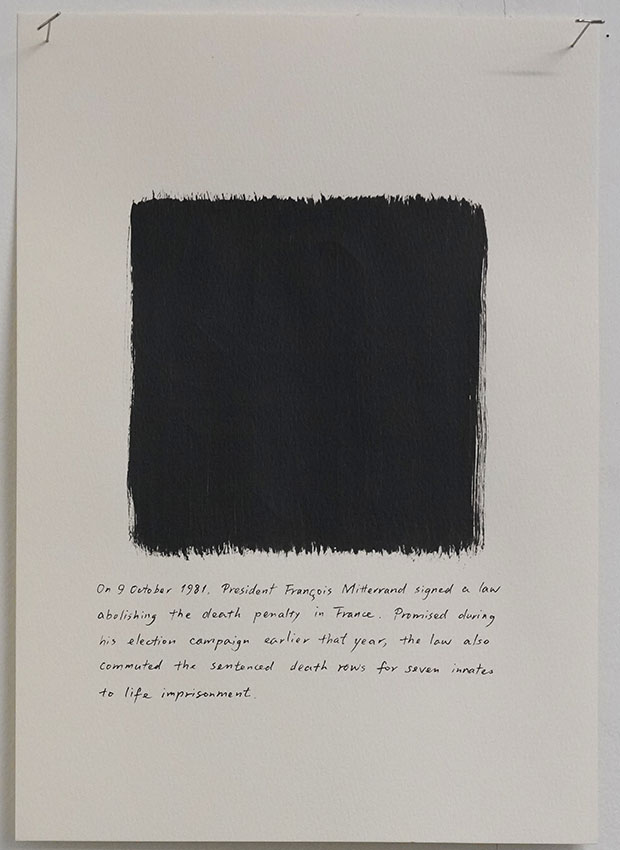 On 9 October 1981, President François Mitterrand signed a law
abolishing the death penalty in France. Promised during
his election campaign earlier that year, the law also
commuted the sentenced death rows for seven inmates
to life imprisonment.